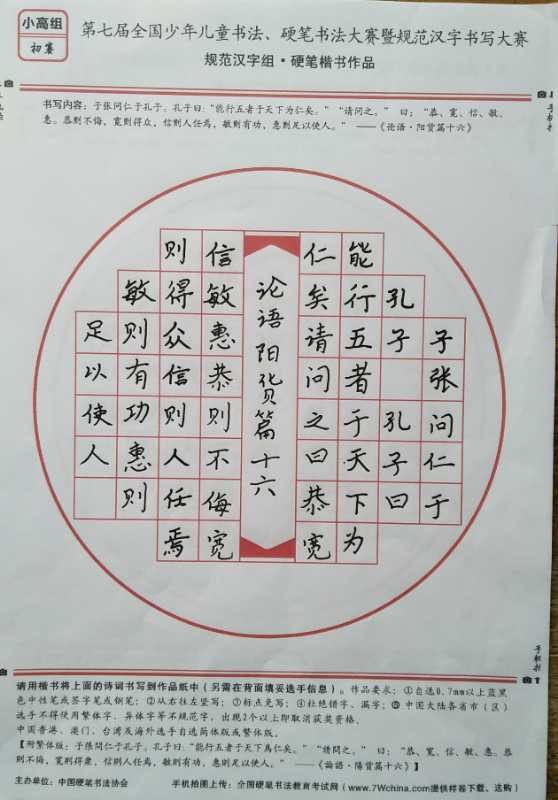 小高组
初赛
第七届全国少年儿童书法、硬笔书法大赛暨规范汉字书写大赛
规范汉字组·硬笔楷书作品
书写内容：子张问仁于孔子。孔子曰：“能行五者于天下为仁矣。” “请问之。” 曰：“恭、宽、信、敏、
惠。恭则不侮，宽则得众，信则人任焉，敏则有功，惠则足以使人。” ——《论语·阳货篇十六》
子张问仁于
孔子 孔子曰
能行五者于天下为
仁矣请问之曰恭宽
论语阳货篇十六
信敏惠恭则不侮宽
则得众信则人任焉
敏则有功惠则
足以使人
请用楷书将上面的诗词书写到作品纸中（另需在背面填妥选手信息）。作品要求：①自选0.7mm以上蓝黑
色中性笔或签字笔或钢笔；②从右往左竖写；③标点免写；④杜绝错字、漏字；⑤中国大陆各省市（区）
选手不得使用繁体字、异体字等不规范字，出现2个以上即取消获奖资格，
中国香港、澳门、台湾及海外选手自选简体版或繁体版。
【附繁体版：子張問仁于孔子。孔子曰：“能行五者于天下爲仁矣。” “請問之。” 曰：“恭、寬、信、敏、惠。恭
則不侮，寬則得衆，信則人任焉，敏則有功，惠則足以使人。” ——《論語·陽貨篇十六》】
主办单位：中国硬笔书法协会 手机拍图上传：全国硬笔书法教育考试网（www.7Wchina.com提供样卷下载、送购）